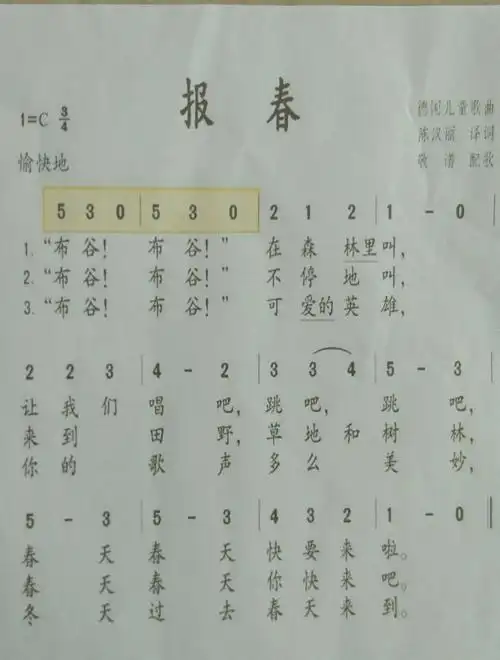 报 春
1=C 3/4
德国儿童歌曲
陈汉丽 译词
敬 谱 配歌
愉快地
5 3 0 | 5 3 0 | 2 1 2 | 1 - 0 |
1. “布 谷! 布 谷!” 在 森 林里 叫,
2. “布 谷! 布 谷!” 不 停 地 叫,
3. “布 谷! 布 谷!” 可 爱的 英 雄,
2 2 3 | 4 - 2 | 3 3 4 | 5 - 3 |
让 我 们 唱 吧, 跳 吧, 跳 吧,
来 到 田 野, 草 地 和 树 林,
你 的 歌 声 多 么 美 妙,
5 - 3 | 5 - 3 | 4 3 2 | 1 - 0 ‖
春 天 春 天 快 要 来 啦。
春 天 春 天 你 快 来 吧。
冬 天 过 去 春 天 来 到。